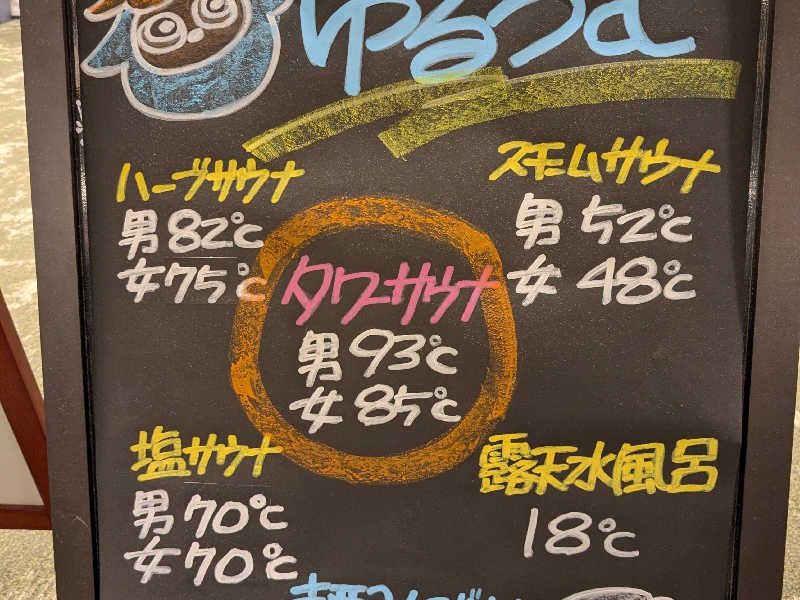 ゆるうむ
ハーブサウナ
男82℃
女75℃
スモームサウナ
男52℃
女48℃
タワーサウナ
男93℃
女85℃
塩サウナ
男70℃
女70℃
露天水風呂
18℃